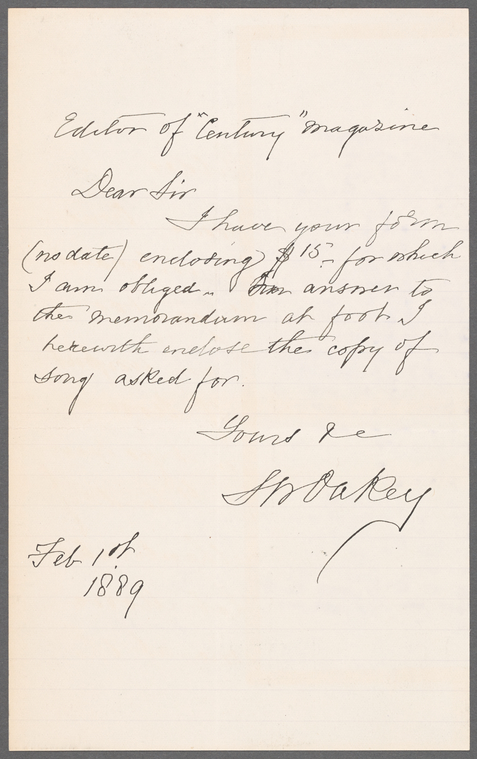 Editor of "Century" Magazine
Dear Sir
I have your form
(no date) enclosing $15.- for which
I am obliged. In answer to
the memorandum at foot I
herewith enclose the copy of
song asked for.
Yours &c
Oakey
Feb 1st
1889